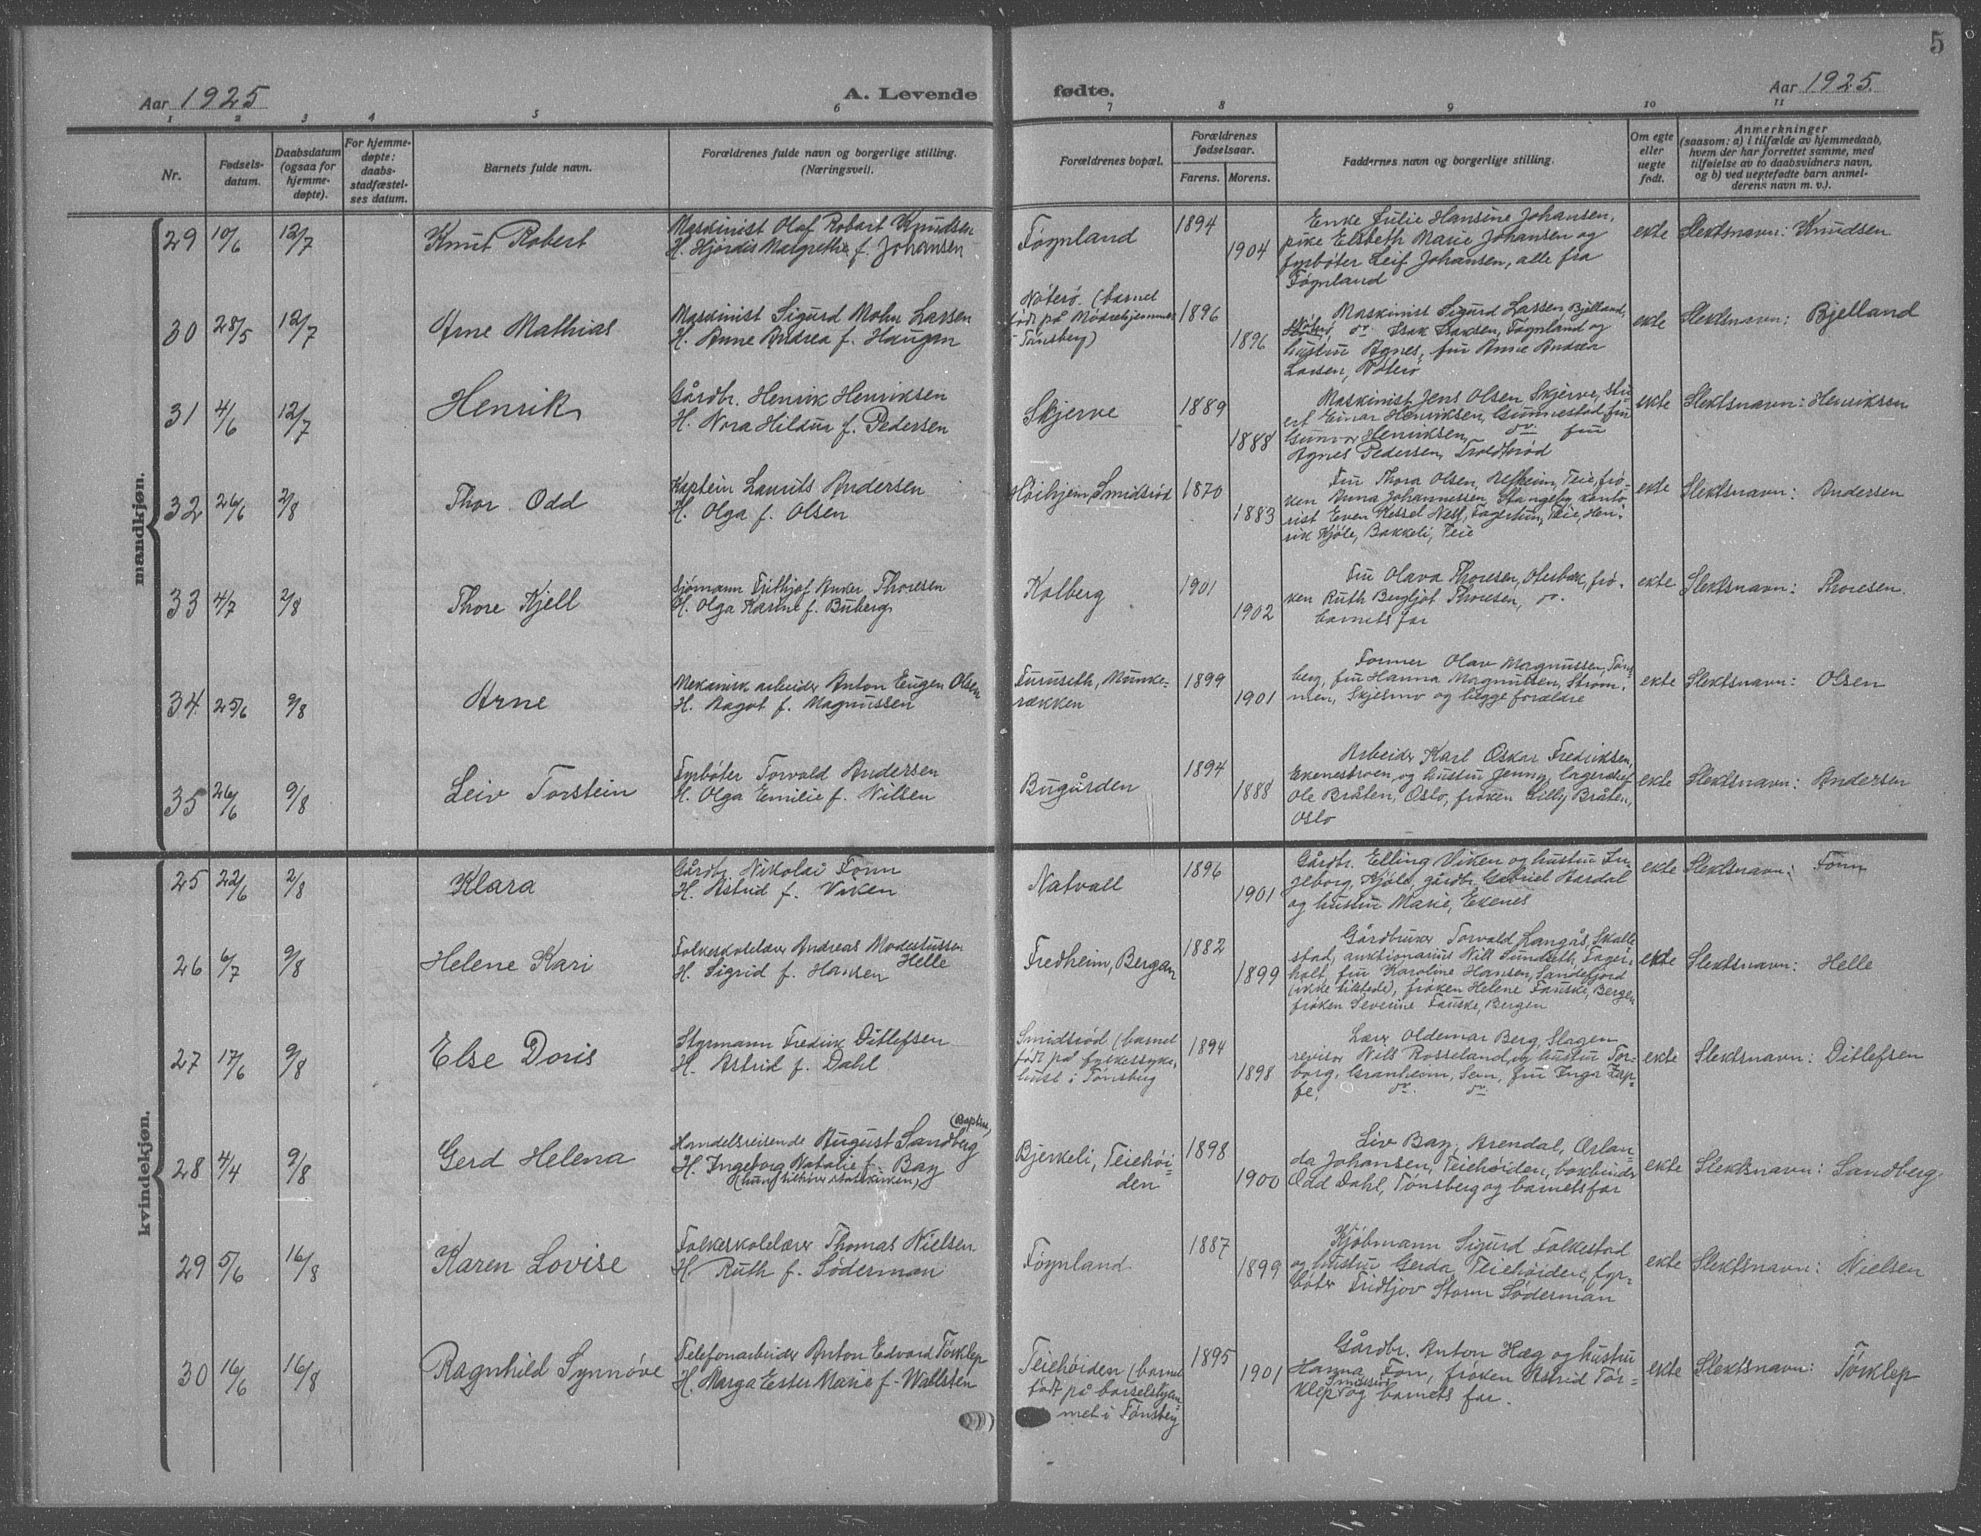 5
Aar 1925
A. Levende fødte.
Aar 1925.
1 2 3 4 5 6 7 8 9 10 11
Nr.
Fødsels-
datum.
Daabsdatum
(ogsaa for
hjemme-
døpte).
For hjemme-
døpte:
daabs-
stadfæstel-
ses datum.
Barnets fulde navn.
Forældrenes fulde navn og borgerlige stilling.
(Næringsvei).
Forældrenes bopæl.
Forældrenes
fødselsaar.
Farens. Morens.
Faddernes navn og borgerlige stilling.
Om egte
eller
uegte
født.
Anmerkninger
(saasom: a) i tilfælde av hjemmedaab,
hvem der har forrettet samme, med
tilføielse av to daabsvidners navn,
og b) ved uegtefødte barn anmel-
derens navn m. v.).
mandkjøn.
29 10/6 12/7 Knut Robert
Maskinist Olaf Robert Knudsen
H. Hjørdis Margrethe f. Johansen
Føynland
1894
1904
Enke Julie Hansine Johansen,
pike Elsbeth Marie Johansen og
fyrbøter Leif Johansen, alle fra
Føynland
ekte Slektsnavn: Knudsen
30 28/5 12/7 Arne Mathias
Maskinist Sigurd Mohn Larsen
H. Anne Andrea f. Haugen
Nøterø. (barnet
født på Mødrehjemmet
i Tønsberg)
1896
1896
Maskinist Sigurd Larsen Bjelland,
Isak Isaksen, Føynland og
hustru Agnes, fru Anne Andrea
Larsen, Nøterø
ekte Slektsnavn: Bjelland
31 4/6 12/7 Henrik
Gårdbr. Henrik Henriksen
H. Nora Hildur f. Pedersen
Skjerve
1889
1888
Maskinist Jens Olsen Skjerve, stu-
ert Einar Henriksen, Gunnestad, fru
Gunvor Henriksen, do. fru
Agnes Pedersen, Troldbrød
ekte Slektsnavn: Henriksen
32 26/6 2/8 Thor Odd
Kaptein Laurits Andersen
H. Olga f. Olsen
Høihjem, Smidsrød
1870
1883
Fru Thora Olsen, Alfheim, Teie, frø-
ken Anna Johannessen, Stangeby, konto-
rist Even Kessel Nest, Fagertun, Teie, Hen-
rik Kjøle, Bakkeli, Teie
ekte Slektsnavn: Andersen
33 4/7 2/8 Thore Kjell
Sjømann Frithjof Anker Thoresen
H. Olga Karine f. Buberg
Kolberg
1901
1902
Fru Olava Thoresen, Olesbæk, frø-
ken Ruth Bergljot Thoresen, do.
barnets far
ekte Slektsnavn: Thoresen
34 25/6 9/8 Arne
Mekanisk arbeider Anton Eugen Olsen
H. Aagot f. Magnussen
Furuseth, Munke-
rækken
1899
1901
Former Olav Magnussen, Tøns-
berg, fru Hanna Magnussen, Strøm-
men, Skjelmo og begge forældre
ekte Slektsnavn: Olsen
35 26/6 9/8 Leiv Torstein
Fyrbøter Torvald Andersen
H. Olga Emilie f. Nilsen
Bugården
1894
1888
Arbeider Karl Oskar Fredriksen,
Ekenestroen, og hustru Jenny, lagerchef
Ole Bråten, Oslo, frøken Lilly Bråten,
Oslo
ekte Slektsnavn: Andersen
kvindekjøn.
25 22/6 2/8 Klara
Gårdbr. Nikolai Fonn
H. Astrid f. Viken
Natvall
1896
1901
Gårdbr. Elling Viken og hustru In-
geborg, Kjøle, gårdbr. Gabriel Aardal
og hustru Marie, Ekenes
ekte Slektsnavn: Fonn
26 6/7 9/8 Helene Kari
Folkeskolelærer Andreas Modestussen
Helle
H. Sigrid f. Hansen
Fredheim, Bergan
1882
1899
Gårdbruker Torvald Langås, Skalle-
stad, auktionarius Nils Sundseth, Fager-
holt, fru Karoline Hansen, Sandefjord
(ikke tilstede), frøken Helene Fauske, Bergen
frøken Severine Fauske, Bergen
ekte Slektsnavn: Helle
27 17/6 9/8 Else Doris
Styrmann Fredrik Ditlefsen
H. Astrid f. Dahl
Smidsrød (barnet
født på fylkessyke-
huset i Tønsberg
1894
1898
Lærer Oldemar Berg, Slagen
revisor Nils Rosseland og hustru Tor-
borg, Granheim, Sem, fru Inga Zap-
fe, do. do.
ekte Slektsnavn: Ditlefsen
28 4/4 9/8 Gerd Helena
(Baptist)
Handelsreisende August Sandberg
H. Ingeborg Natalie f. Bay
(hun tilhører statskirken)
Bjerkeli, Teiehøi-
den
1898
1900
Liv Bay, Arendal, Orlan-
da Johansen, Teiehøiden, bokbinder
Odd Dahl, Tønsberg og barnets far
ekte Slektsnavn: Sandberg
29 5/6 16/8 Karen Lovise
Folkeskolelærer Thomas Nielsen
H. Ruth f. Söderman
Føynland
1887
1899
Kjøbmann Sigurd Folkestad
og hustru Gerda, Teiehøiden, fyr-
bøter Fridtjov Storm Söderman
ekte Slektsnavn: Nielsen
30 16/6 16/8 Ragnhild Synnøve
Telefonarbeider Anton Edvard Tørklep
H. Marga Ester Marie f. Wallsten
Teiehøiden (barnet
født på barselshjem-
met i Tønsberg
1895
1901
Gårdbr. Anton Hæg og hustru
Hanna, Fon, frøken Astrid Tør-
klep Smidsrød og barnets far.
ekte Slektsnavn: Tørklep